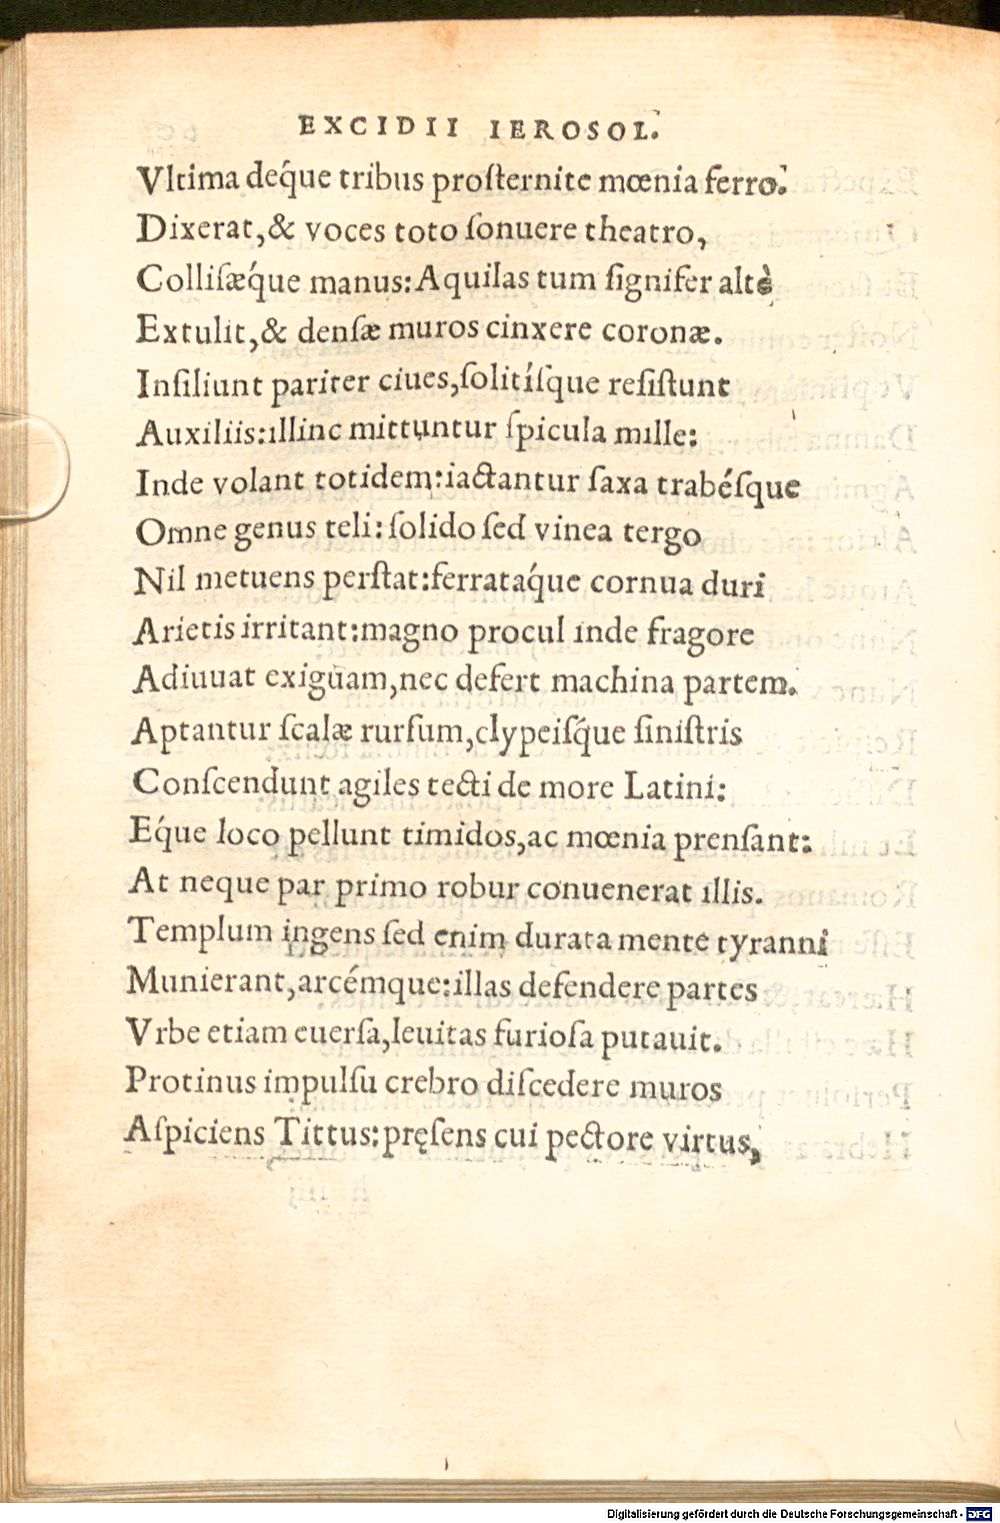 EXCIDII IEROSOL.
Vltima deq́ue tribus proſternite mœnia ferro.
Dixerat,& voces toto ſonuere theatro,
Colliſæq́ue manus:Aquilas tum ſignifer altè
Extulit,& denſæ muros cinxere coronæ.
Inſiliunt pariter ciues,ſolitíſque reſiſtunt
Auxiliis:illinc mittuntur ſpicula mille:
Inde volant totidem:iactantur ſaxa trabéſque
Omne genus teli: ſolido ſed vinea tergo
Nil metuens perſtat:ferrataq́ue cornua duri
Arietis irritant:magno procul inde fragore
Adiuuat exiguam,nec defert machina partem.
Aptantur ſcalæ rurſum,clypeiſq́ue ſiniſtris
Conſcendunt agiles tecti de more Latini:
Eq́ue loco pellunt timidos,ac mœnia prenſant:
At neque par primo robur conuenerat illis.
Templum ingens ſed enim durata mente tyranni
Munierant,arcémque:illas defendere partes
Vrbe etiam euerſa,leuitas furioſa putauit.
Protinus impulſu crebro diſcedere muros
Aſpiciens Tittus:pręſens cui pectore virtus,
Digitalisierung gefördert durch die Deutsche Forschungsgemeinschaft - DFG